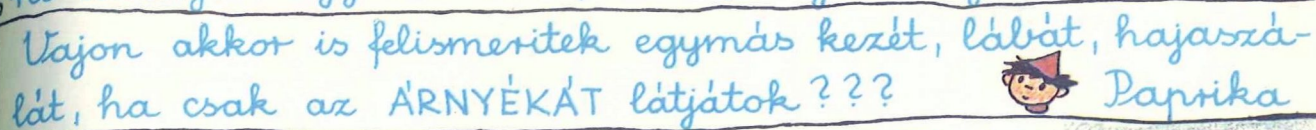 Vajon akkor is felismeritek egymás kezét, lábát, hajaszá-
lát, ha csak az ÁRNYÉKÁT látjátok??? Paprika